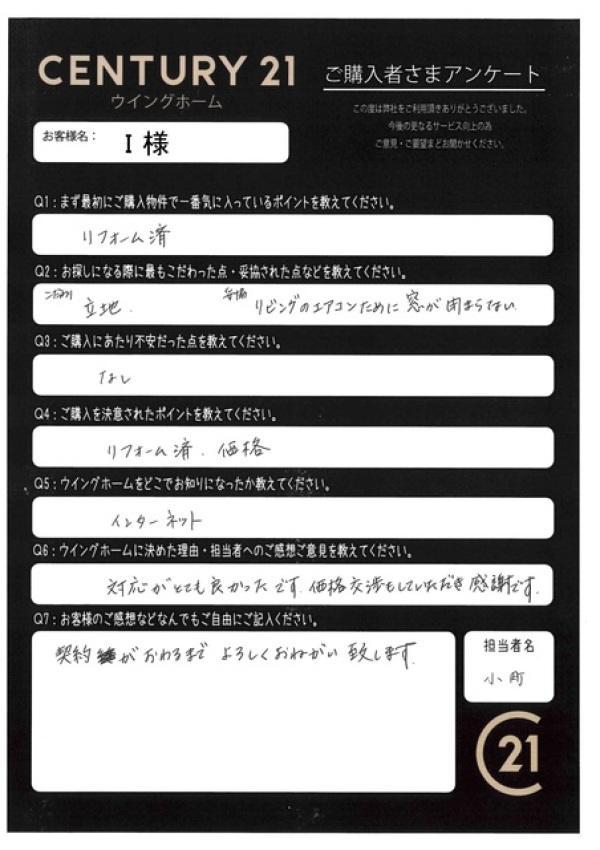 CENTURY 21
ウイングホーム
ご購入者さまアンケート
この度は弊社をご利用頂きありがとうございました。
今後の更なるサービス向上の為
ご意見・ご要望をお聞かせください。
お客様名： I 様
Q1：まず最初にご購入物件で一番気に入っているポイントを教えてください。
リフォーム済
Q2：お探しになる際に最もこだわった点・妥協された点などを教えてください。
こだわり 立地. 妥協 リビングのエアコンために 窓が閉まらない
Q3：ご購入にあたり不安だった点を教えてください。
なし
Q4：ご購入を決意されたポイントを教えてください。
リフォーム済. 価格
Q5：ウイングホームをどこでお知りになったか教えてください。
インターネット
Q6：ウイングホームに決めた理由・担当者へのご感想ご意見を教えてください。
対応がとても良かったです. 価格交渉もしていただき感謝です.
Q7：お客様のご感想などなんでもご自由にご記入ください。
契約がおわるまで よろしくおねがい 致します.
担当者名
小町
21